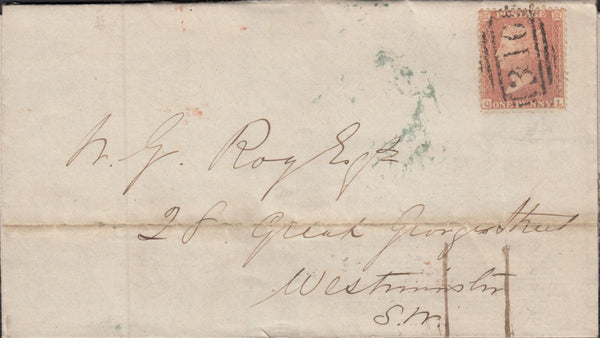 POSTAGE
316
C ONE PENNY L
W. G. Roy Esqre
28 Great George Street
Westminster
S.W.